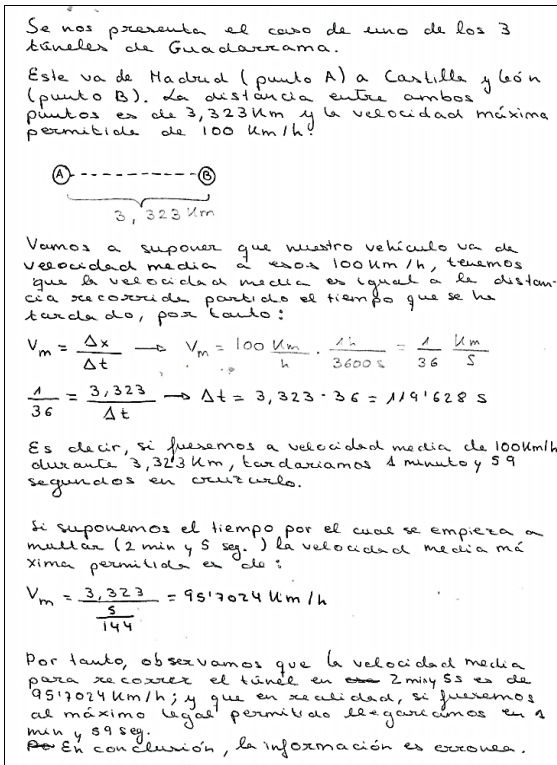 Se nos presenta el caso de uno de los 3
túneles de Guadarrama.
Este va de Madrid (punto A) a Castilla y León
(punto B). La distancia entre ambos
puntos es de 3,323 Km y la velocidad máxima
permitida de 100 Km/h.
A B
3,323 Km
Vamos a suponer que nuestro vehículo va de
velocidad media a esos 100 Km/h, tenemos
que la velocidad media es igual a la distan-
cia recorrida partido el tiempo que se ha
tardado, por tanto:
Vm = Δx/Δt → Vm = 100 Km/h · 1h/3600s = 1/36 Km/s
1/36 = 3,323/Δt → Δt = 3,323 · 36 = 119'628 s
Es decir, si fuesemos a velocidad media de 100Km/h
durante 3,323 Km, tardariamos 1 minuto y 59
segundos en cruzarlo.
Si suponemos el tiempo por el cual se empieza a
multar (2 min y 5 seg.) la velocidad media má
xima permitida es de:
Vm = 3,323/(5/144) = 95'7024 Km/h
Por tanto, observamos que la velocidad media
para recorrer el túnel en 2 min y 5s es de
95'7024 Km/h; y que en realidad, si fuesemos
al máximo legal permitido llegaríamos en 1
min y 59 seg.
En conclusión, la información es erronea.